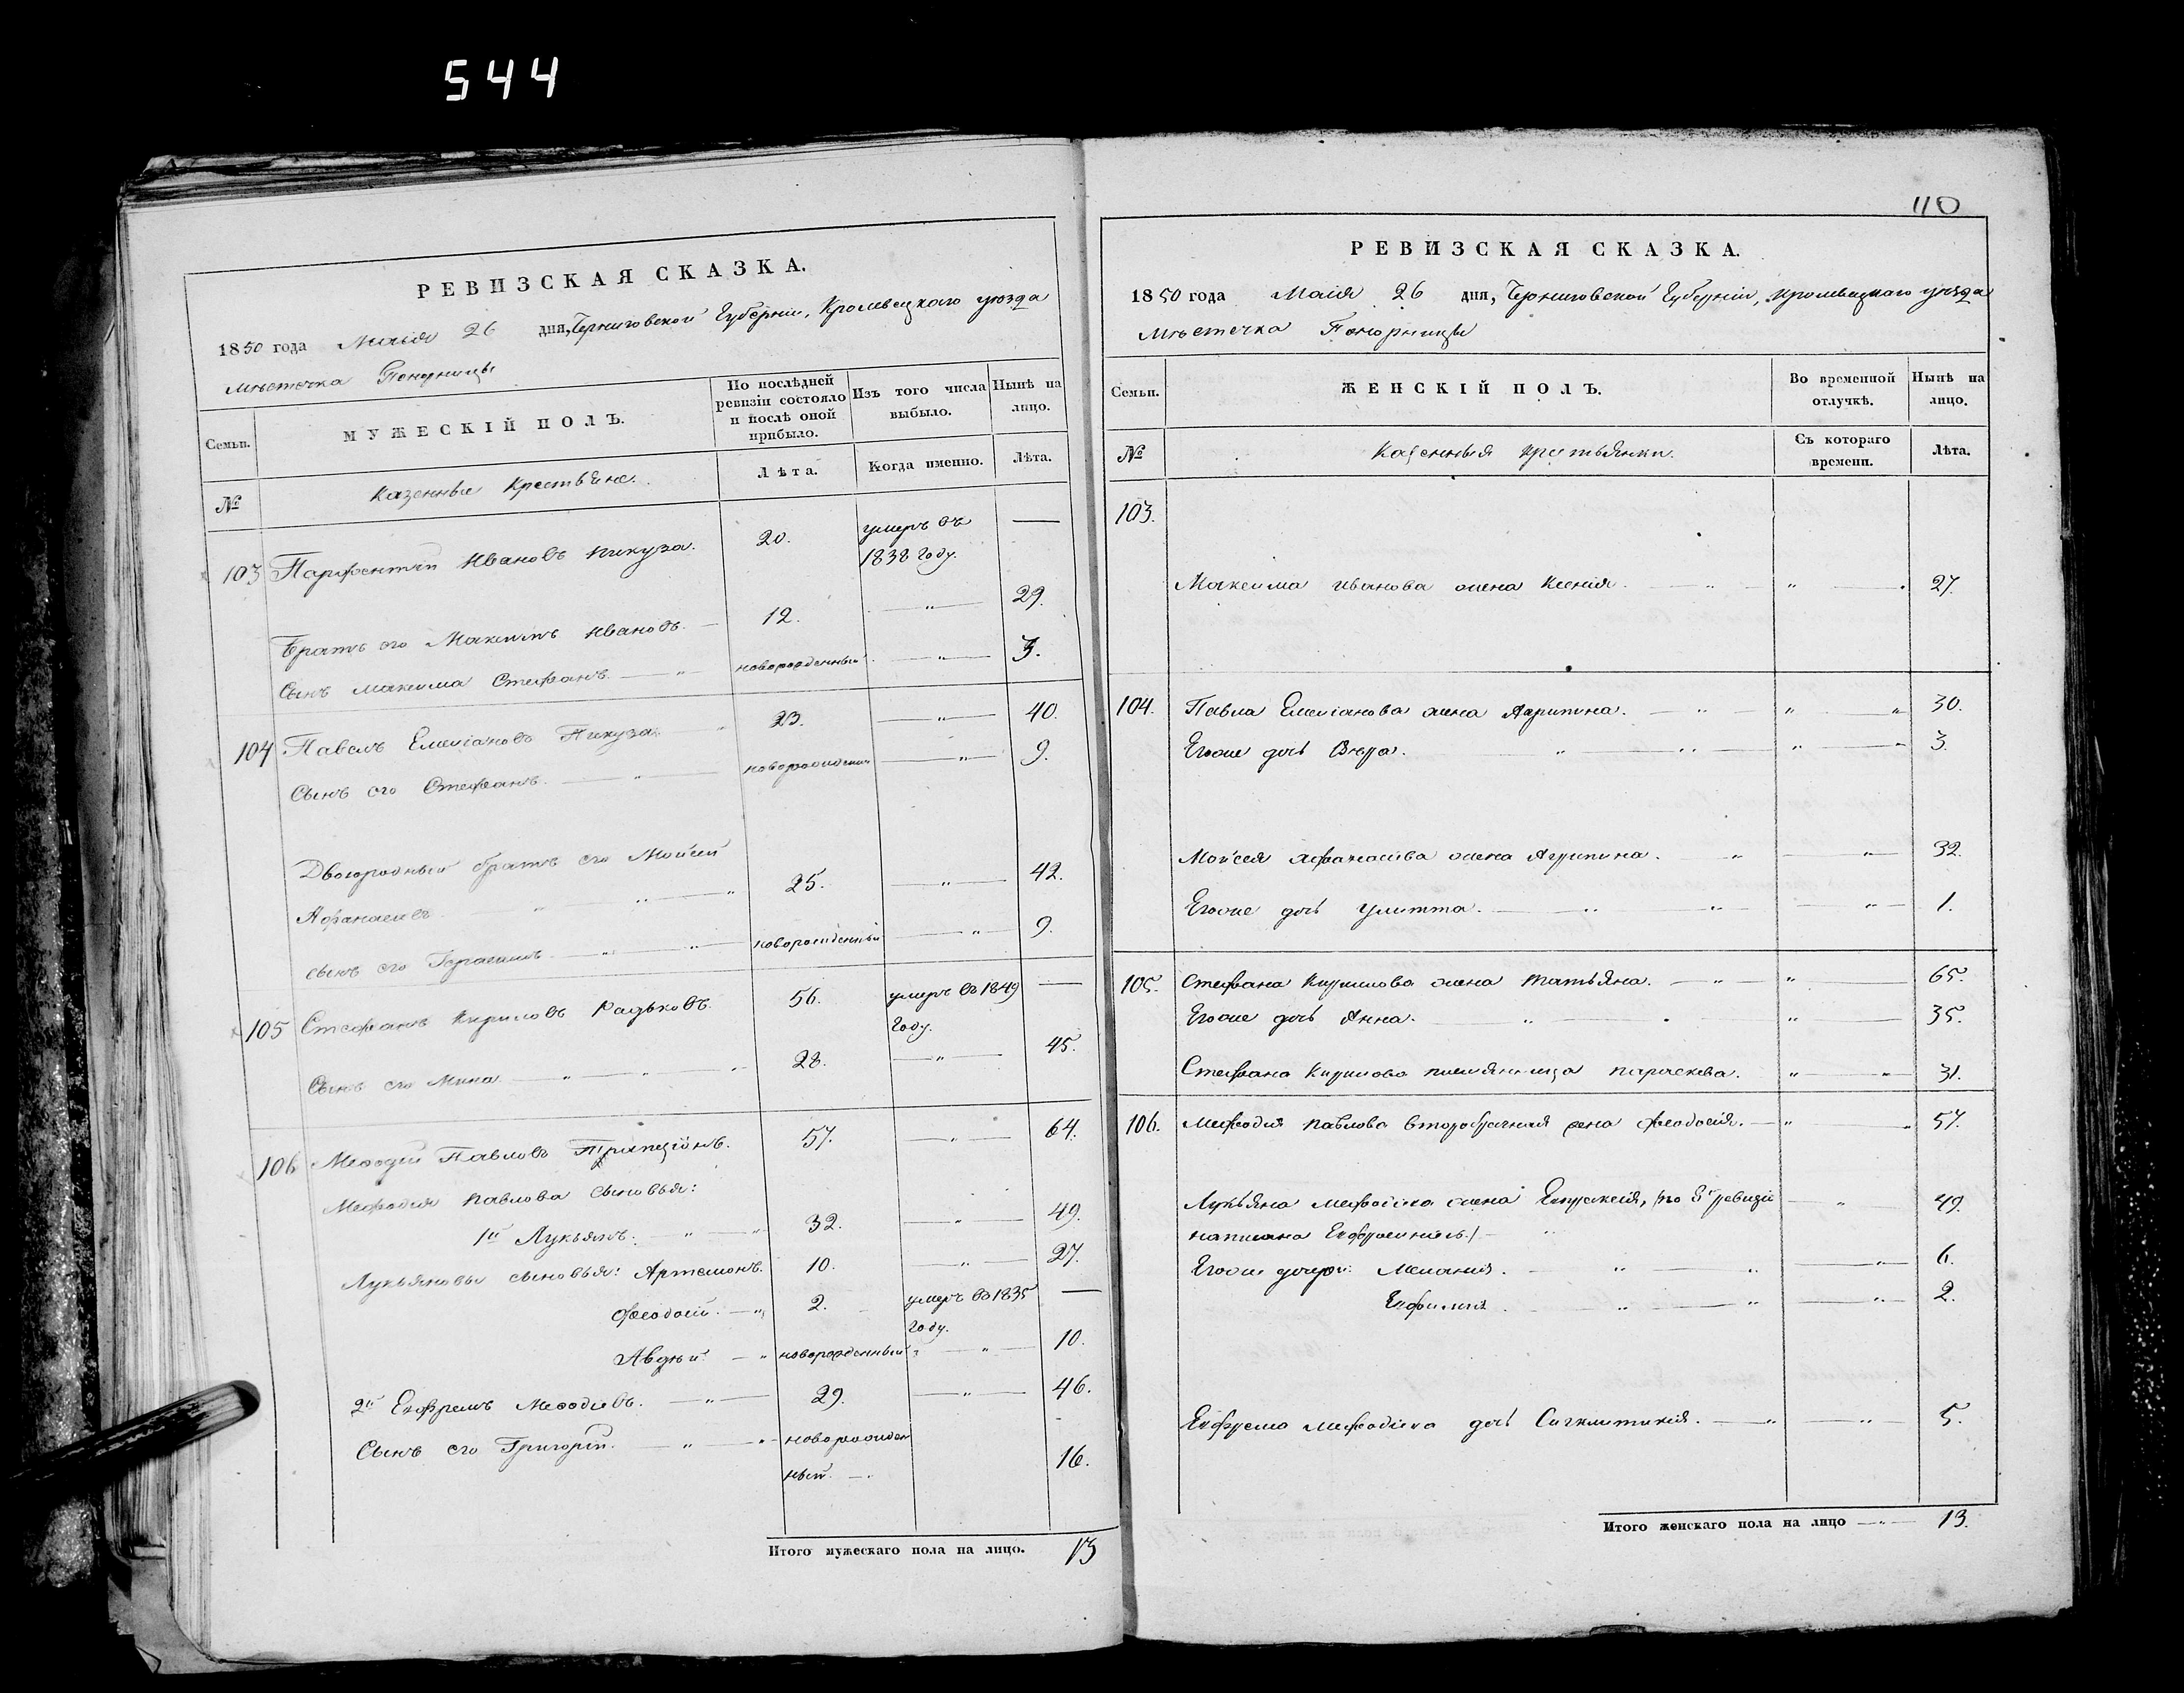 544
РЕВИЗСКАЯ СКАЗКА.
1850 года Маія 26 дня, Черниговской Губерніи, Кролевецкаго уѣзда
мѣстечка Понорницы
Семьи.
МУЖЕСКІЙ ПОЛЪ.
По послѣдней ревизіи состояло и послѣ оной прибыло.
Изъ того числа выбыло.
Нынѣ на лицо.
№
Казенные Крестьяне.
Лѣта.
Когда именно.
Лѣта.
103 Парфентій Ивановъ Пикуза. 20. умеръ въ 1838 году. —
Братъ его Максимъ Ивановъ. — 12. — „ — 29.
Сынъ Максима Стефанъ. — „ новорожденный. — „ — 3.
104 Павелъ Емеліановъ Пикуза. „ 23. — „ — 40.
Сынъ его Стефанъ. — „ — новорожденн — „ — 9.
Двоюродный братъ его Мойсей
Афанасіевъ. „ „ — „ 25. — „ — 42.
сынъ его Герасимъ. — „ — „ — новорожденный — „ — 9.
105 Стефанъ Кириловъ Радьковъ. 56. умеръ въ 1849 году. —
Сынъ его Мина. „ „ „ 28. — „ — 45.
106 Меѳодій Павловъ 57. — „ — 64.
Мефодия Павлова сыновья:
1й Лукьянъ. „ — „ 32. — „ — 49.
Лукьяновы сыновья: Артемонъ. 10. — „ — 27.
Феодосій. — „ 2. умеръ въ 1835 году. —
Авдѣй. — „ новорожденный „ — „ — 10.
2й Ефремъ Меѳодіевъ. — „ — 29. — „ — 46.
Сынъ его Григорій. — „ — новорожден
ный. — 16.
Итого мужескаго пола на лицо. 13
110
РЕВИЗСКАЯ СКАЗКА.
1850 года Маія 26 дня, Черниговской Губерніи, Кролевецкаго уѣзда
Мѣстечка Понорницы
Семьи.
ЖЕНСКІЙ ПОЛЪ.
Во временной отлучкѣ.
Нынѣ на лицо.
№
Казенныя крестьянки.
Съ котораго времени.
Лѣта.
103.
Максима Иванова жена Ксенія. „ „ — 27.
104. Павла Емеліанова жена Агрипина. — „ — „ — „ 30.
Егоже дочь Вѣра. „ — „ — „ — „ 3.
Мойсея Афанасіева жена Агрипина. „ — „ — 32.
Егоже дочь Улитта. — „ — „ — „ — 1.
105. Стефана Кирилова жена Татьяна. — „ — „ — 65.
Егоже дочь Анна. — „ — „ — 35.
Стефана Кирилова племянница Параскева. „ — „ — 31.
106. Мефодия Павлова второбрачная жена Феодосія. — „ 57.
Лукьяна Мефодіева жена Евпраксія, /по 8й ревизіи — „ — 49.
написана Евфросиніею/ — „
Егоже дочери: Меланія. — „ — „ — „ — 6.
Евфимія. — „ — „ — „ — 2.
Евфрема Мефодіева дочь Сигклитикія. — „ — „ — 5.
Итого женскаго пола на лицо — „ — 13.